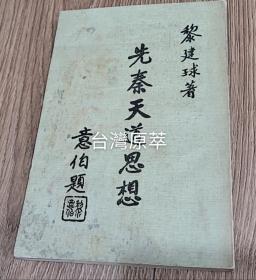 黎建球著
先秦天道思想
意伯題
台灣原萃